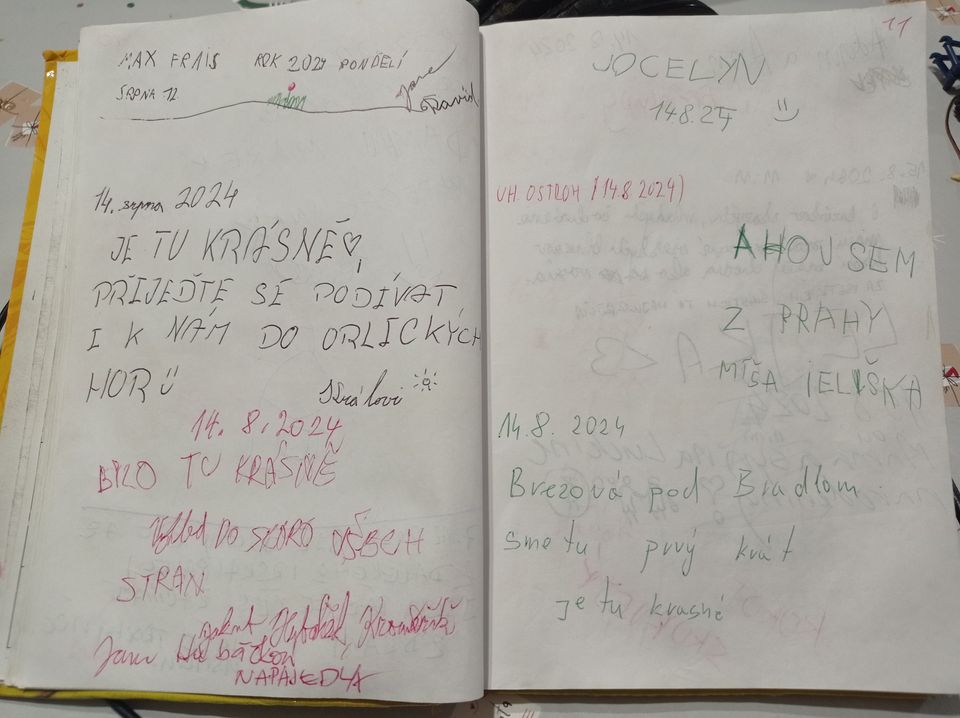 MAX FRAIS ROK 2024 PONDĚLÍ
SRPNA 12
David
14. srpna 2024
JE TU KRÁSNĚ♡,
PŘIJEĎTE SE PODÍVAT
I K NÁM DO ORLICKÝCH
HOR
Královi
14. 8. 2024
BYLO TU KRÁSNĚ
Výhled DO SKORO VŠECH
STRAN
NAPAJEDLA
11
JOCELYN
14.8.24
UH. OSTROH (14.8 2024)
AHOJ SEM
Z PRAHY
MÍŠA I ELIŠKA
14.8. 2024
Brezová pod Bradlom
sme tu prvý krát
je tu krasné